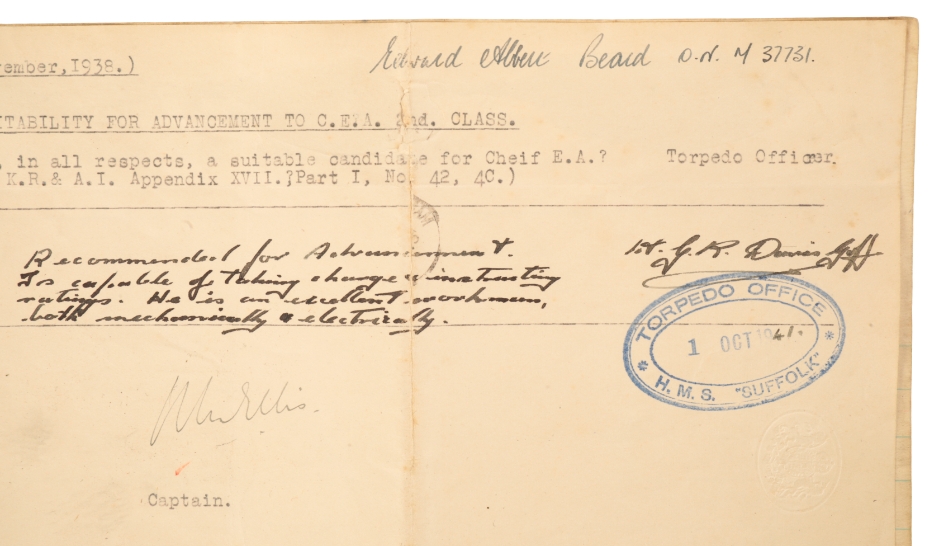 ember, 1938.) Edward Albert Beard O.N. M 37731.
ITABILITY FOR ADVANCEMENT TO C.E.A. 2nd. CLASS.
, in all respects, a suitable candidate for Cheif E.A.? Torpedo Officer.
K.R.& A.I. Appendix XVII.;Part I, No. 42, 4C.)
Recommended for Advancement. Lt. G. R. Davis
Is capable of taking charge & instructing
ratings. He is an excellent workman,
both mechanically & electrically.
TORPEDO OFFICE
1 OCT 1941.
* H.M.S. "SUFFOLK" *
Ellis.
Captain.